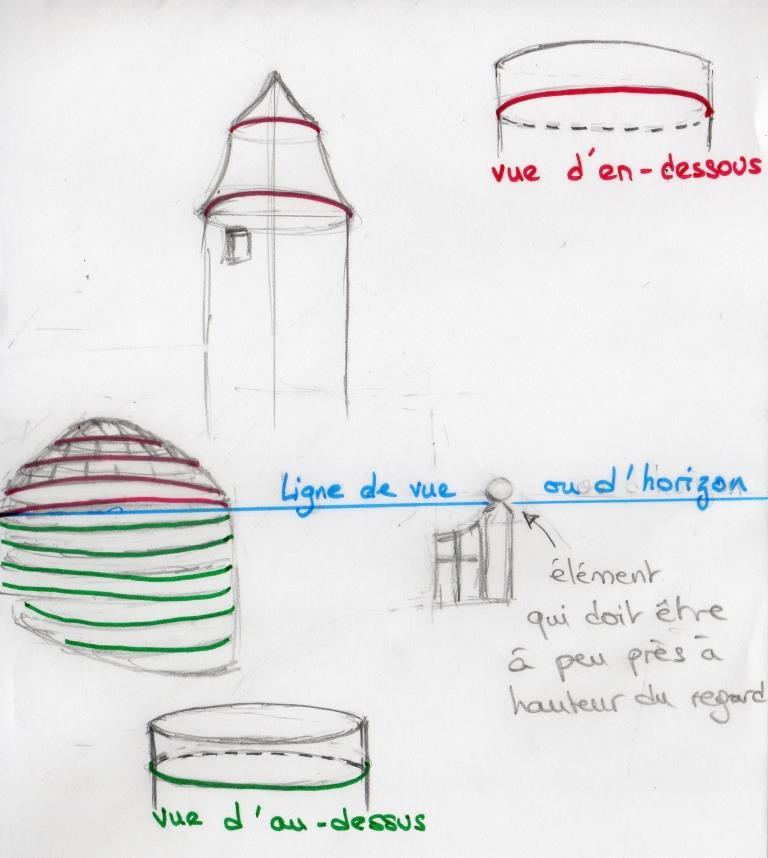 vue d'en-dessous
Ligne de vue ou d'horizon
élément
qui doit être
à peu près à
hauteur du regard
vue d'au-dessus